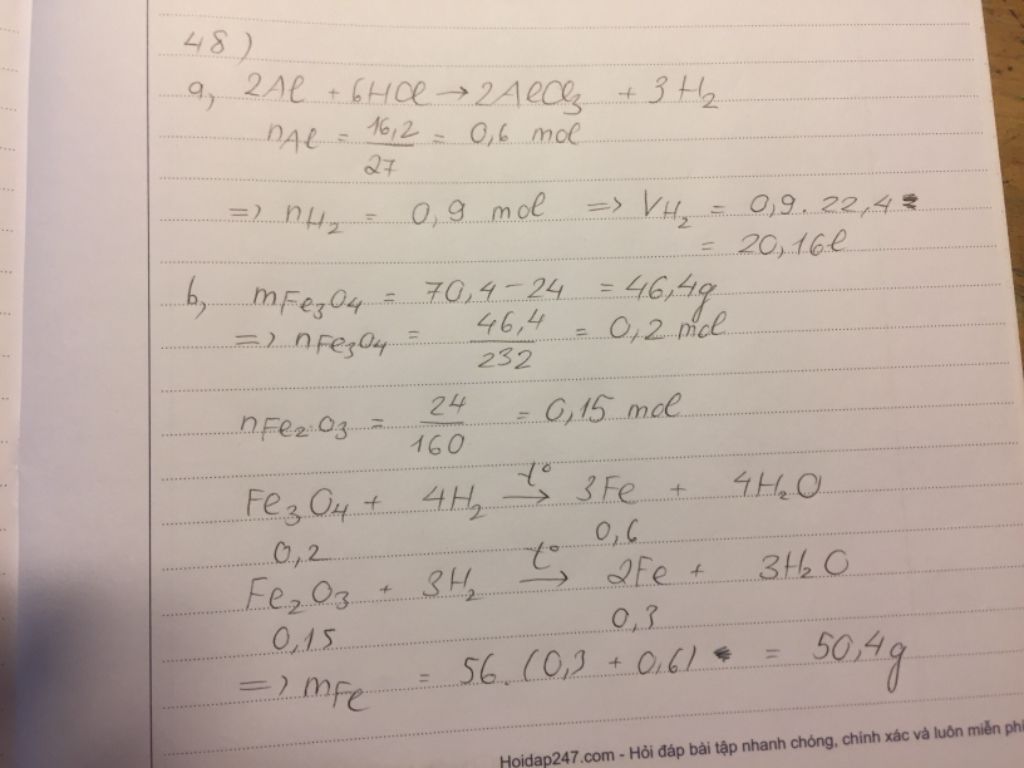 48)
a, 2Al + 6HCl → 2AlCl3 + 3H2
nAl = 16,2/27 = 0,6 mol
=> nH2 = 0,9 mol => VH2 = 0,9 . 22,4
= 20,16l
b, mFe3O4 = 70,4 - 24 = 46,4g
=> nFe3O4 = 46,4/232 = 0,2 mol
nFe2O3 = 24/160 = 0,15 mol
Fe3O4 + 4H2 →t° 3Fe + 4H2O
0,2 0,6
Fe2O3 + 3H2 →t° 2Fe + 3H2O
0,15 0,3
=> mFe = 56.(0,3 + 0,6) = 50,4g
Hoidap247.com - Hỏi đáp bài tập nhanh chóng, chính xác và luôn miễn phí